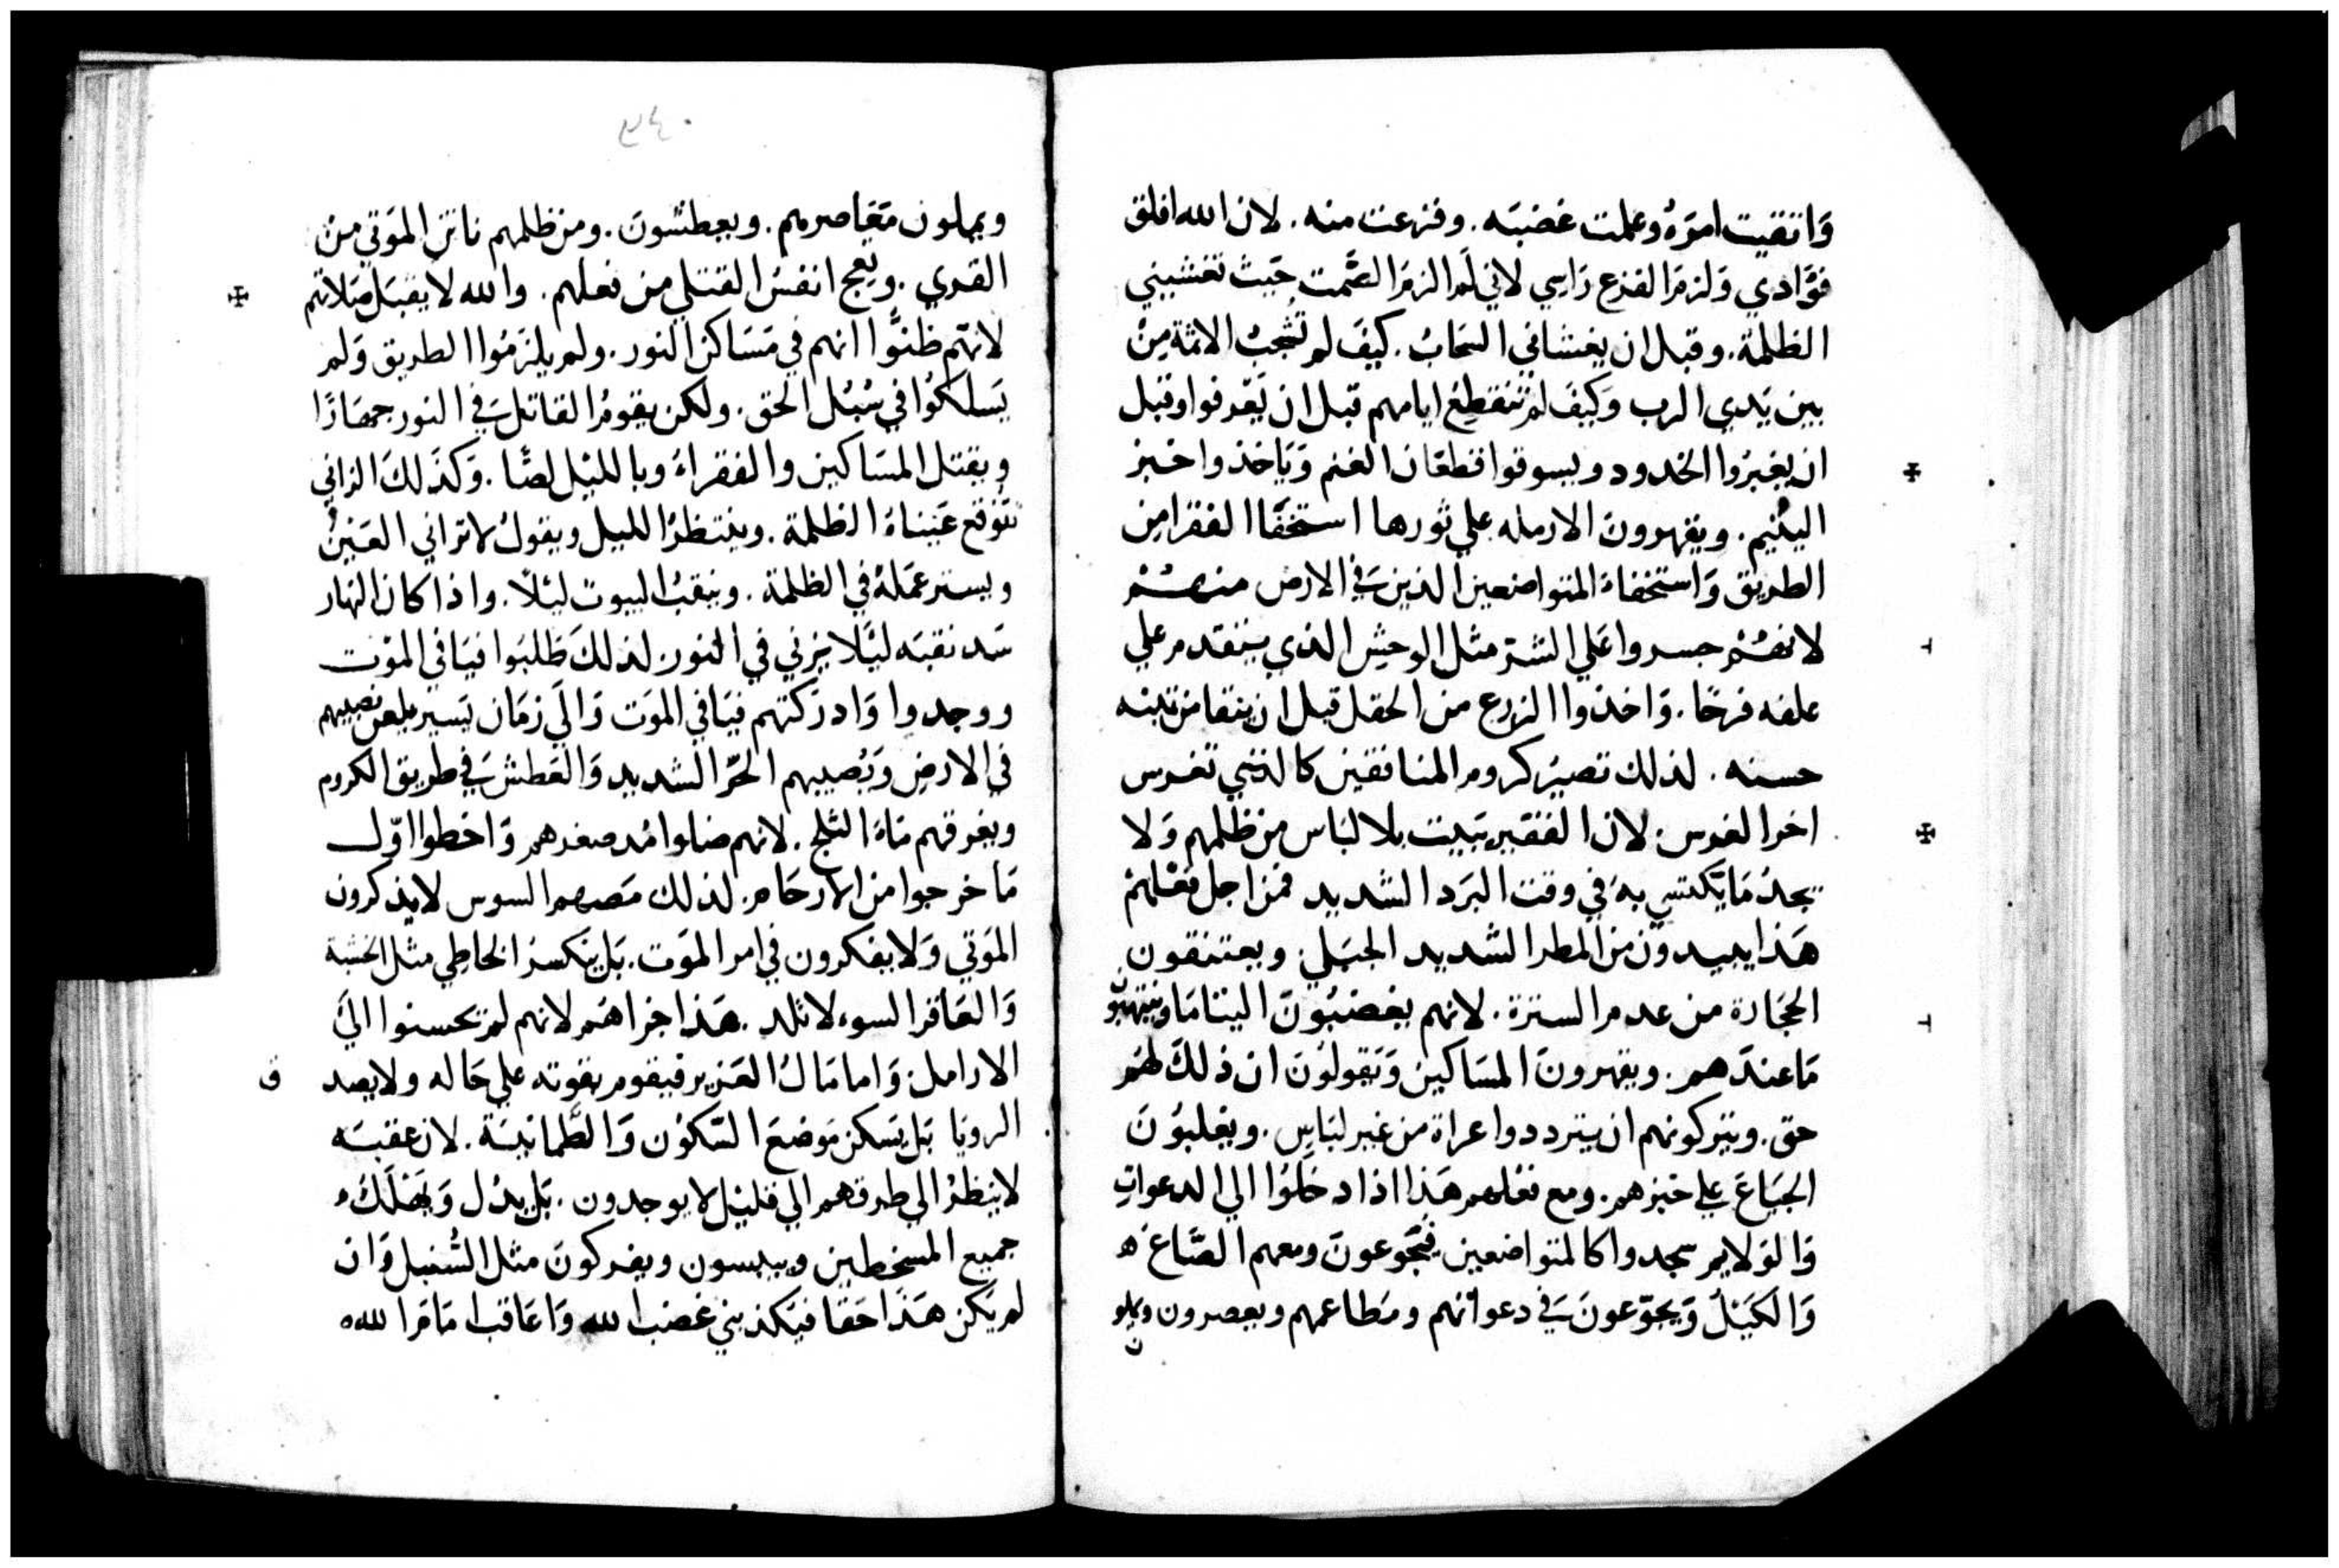 وَاتقيت امرَهُ وعلمت غضبَه. وفزعت منه. لان الله اقلق
فؤَادي وَلزمَ الفزع رَاسي لاني لَم الزمَ الصَّمت حَيث تغشيني
الظلمة. وقبل ان يغشاني السَحابُ. كيَف لم تُحجبُ الاثمة مِنْ
بين يَدي الرب وَكيَف لم تنقطِعْ ايامهم قبل ان يَعْرفوا وقبل
ان يغيرُوا الحدود ويسوقوا قطعَان الغنم وَيَاخذوا خبز
اليتيم. ويقهرون الارمله علي ثورها استخفَا الفقرا مِن
الطريق وَاستخفاءَ المتواضعين الذين فيَ الارض منهــم
لانهُــم جسروا عَلي الشرّ مثل الوحِش الذي يتقدم علي
علفه فرحًا. وَاخذوا الزرع من الحقل قبل ان ينقا من تبنه
حسنه. لذلك تصيرُ كروم المنافقين كالذي تغرس
اخر الغرس. لان الفقير يَبيت بلا لبَاس من ظلمهم وَلا
يجدُ مَا يَكتسي بهِ في وقت البَرَد الشديد فمن اجل فعْلهمْ
هَذا يبيدون من المطر الشديد الجبَلي. ويعتنقون
الحجَارة من عدم السترة. لانهم يغضبُونَ اليتامَا وينتهبُون
مَا عندَهم. ويقهرونَ المسَاكين وَيَقولوُنَ ان ذلكَ لهُم
حق. ويتركونهم ان يترددوا عراة من غير لبَاسٍ. ويغلبُونَ
الجيَاعَ علي خبزهم. ومع فعْلهم هَذا اذا دخلوُا الي الدعواتِ
وَالولايم سجدوا كالمتواضعين فيَجَوعونَ ومعهم الصَّاع
وَالكَيْلُ وَيجوّعونَ فيَ دعواتهم ومَطاعمهم ويعصرون ويملون
٣٤٠
ويملون مَعَاصرهم. ويعطشونَ. ومن ظلمهم نا تن الموَتي منْ
القري. ويَعج انفسُ القتلي من فعلهم. والله لا يقبَل صَلاتهم
لانهّم ظنوَّا انهم في مَسَاكن النور. ولم يلزمُوا الطريق وَلم
يَسلكوُا في سُبُل الحق. ولكن يقومُ القاتل فيَ النور جهَارًا
ويقتل المسَاكين والفقراءَ وبالليْل لصًّا. وَكذَلكَ الزاني
تتَوْقع عَيناهُ الظلمة. وينتظرُ الليل ويقولُ لا تراني العَينُ
ويستر عمَلهُ في الظلمة. وينقبُ البيوت ليْلاً. واذا كان النهار
سَد نقبَه ليَلا يزني في النور. لذلكَ طلبَوا فيَافي الموْت
ووجدوا وَادرَكتهم فيَافي الموَت وَالَي زمَان يَسير يلعن نصيبهم
في الارضِ وَيَصيبهم الحرّ الشديد وَالعَطش فيَ طريق الكروم
ويغرقهم مَاءُ الثلج. لانهم ضلوا مُد صغرهم وَاخطوُا اوّل
مَا خرجوا من الارحَام. لذلك مَصهم السوس لا يذكرون
الموَتي وَلا يفكرون في امر الموَت. بَل يَنكسرُ الخاطِي مثل الخشبة
وَالعَاقر السوء لا تلد. هَذا جزاهُم لانهم لم يَحسنوا اليَ
الارامل. وَاما مَالُ العَزيز فيقوم بقوته علي حَاله ولا يصد
الرويَا بَل يَسكن مَوضعَ السّكوُن وَالطَّمانينَة. لان عقبَه
لا ينظرُ الي طرقهم الي قليْل لا يوجدون. بَل يدل وَيَهْلَكُ
جميع المسخطين وييبسون ويفركونَ مثل السُنبل وَان
لم يَكن هَذَا حَقا فيَكذبني غضب الله وَاعَاقب امَامَ الله